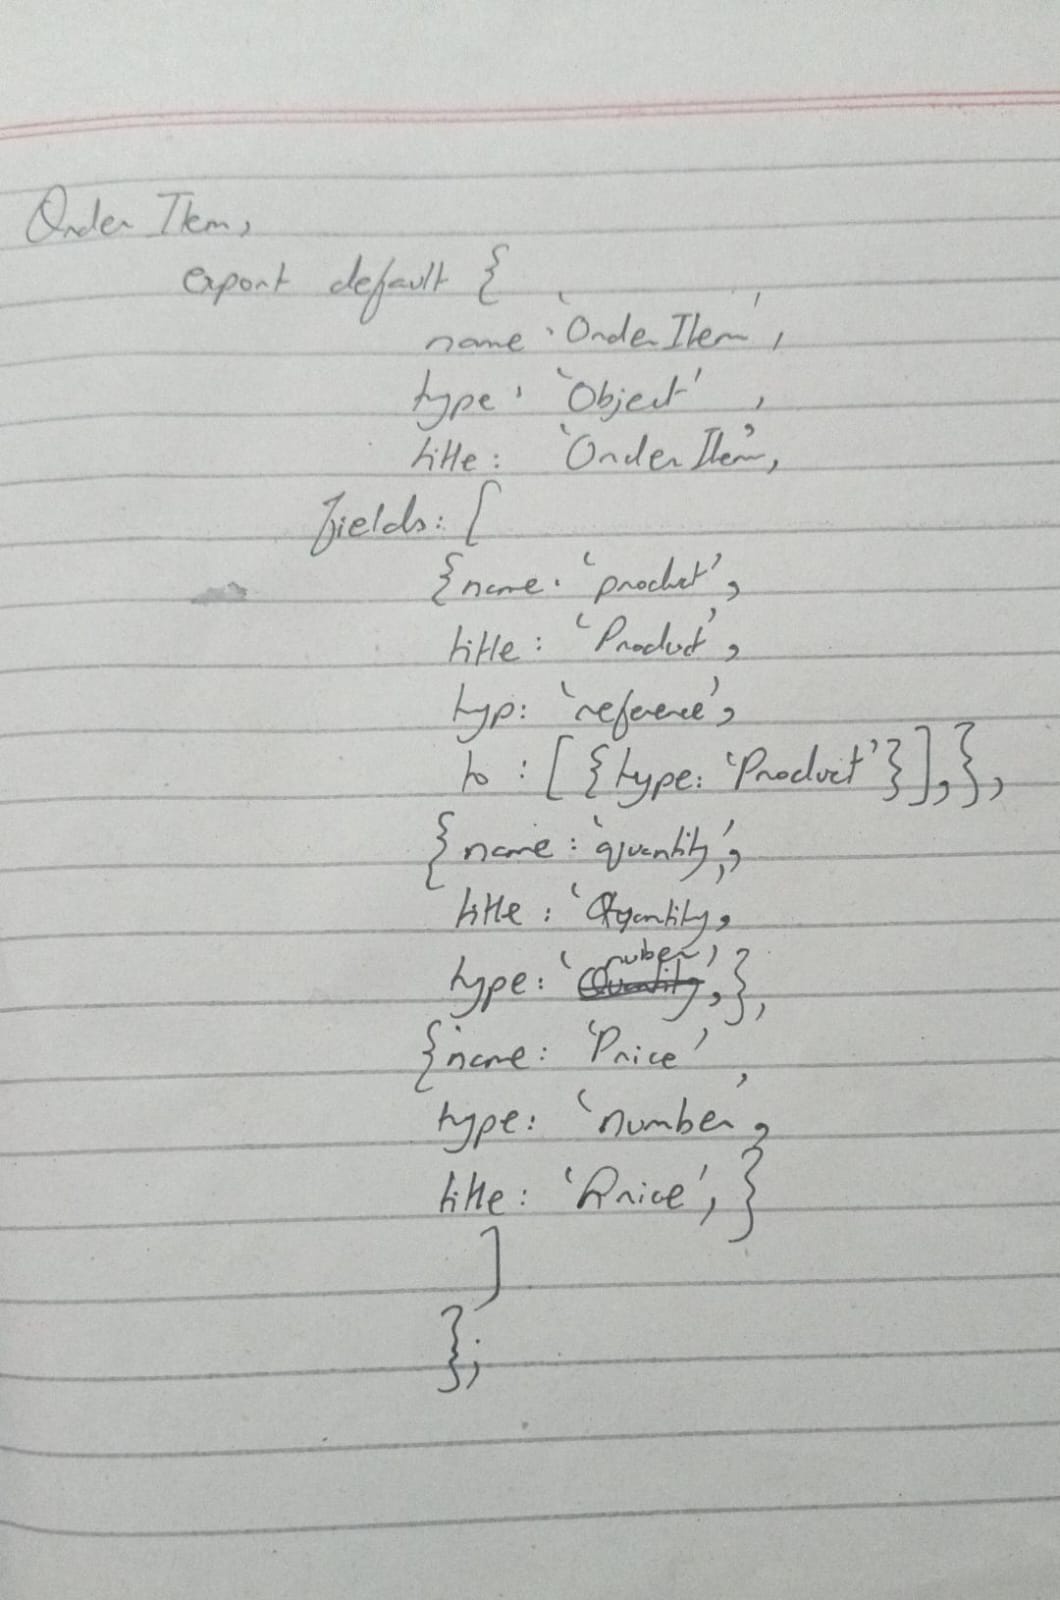 Order Item,
export default {
name 'Order Item',
type 'Object',
title: 'Order Item',
fields: [
{name. 'product',
title: 'Product',
typ: 'reference',
to : [{type: 'Product'}],},
{name : 'quantity',
title : 'Quantity,
type: 'nuber',},
{name: 'Price',
type: 'number,
title: 'Price',}
]
};